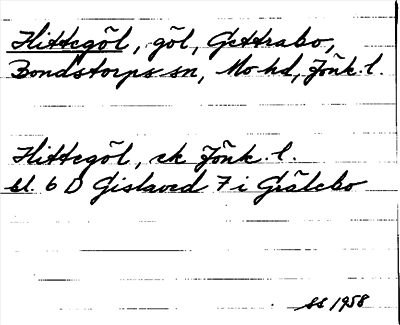 Hittegöl, göl, Gettrabo,
Bondstorps sn, Mo hd, Jönk. l.
Hittegöl, ek Jönk. l.
bl. 6 D Gislaved 7 i Gråtebo
SS 1958